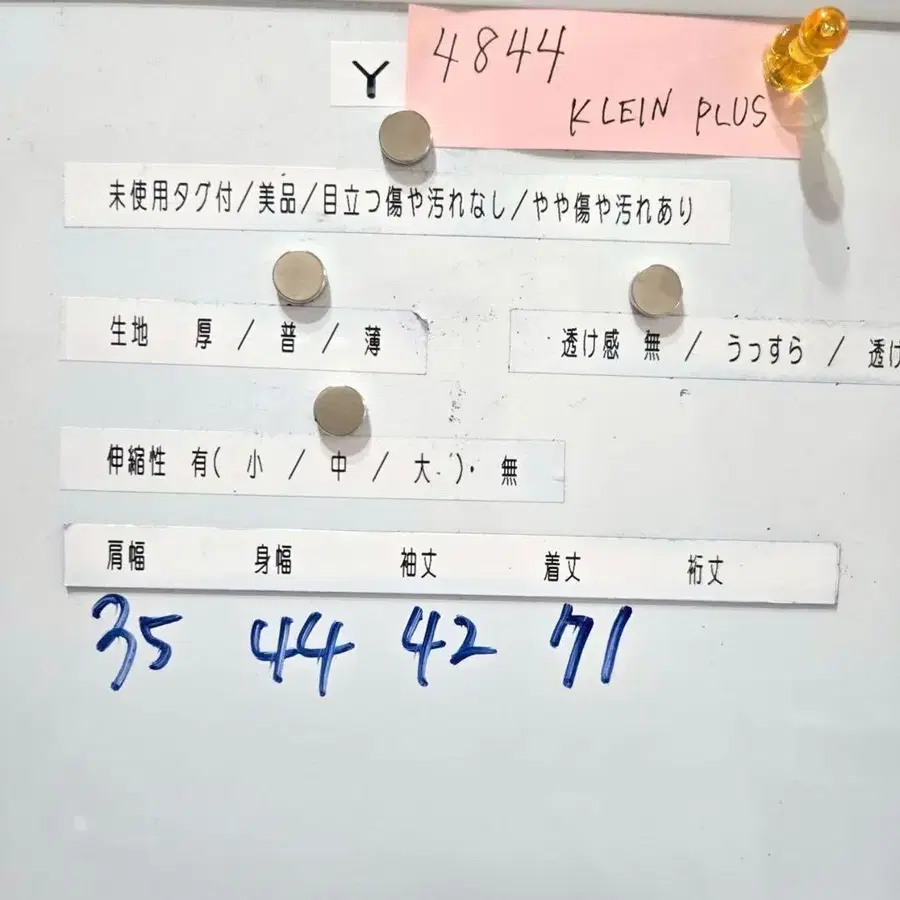 Y 4844
KLEIN PLUS
未使用タグ付/美品/目立つ傷や汚れなし/やや傷や汚れあり
生地 厚 / 普 / 薄
透け感 無 / うっすら / 透け
伸縮性 有( 小 / 中 / 大 )・ 無
肩幅 身幅 袖丈 着丈 裄丈
35 44 42 71